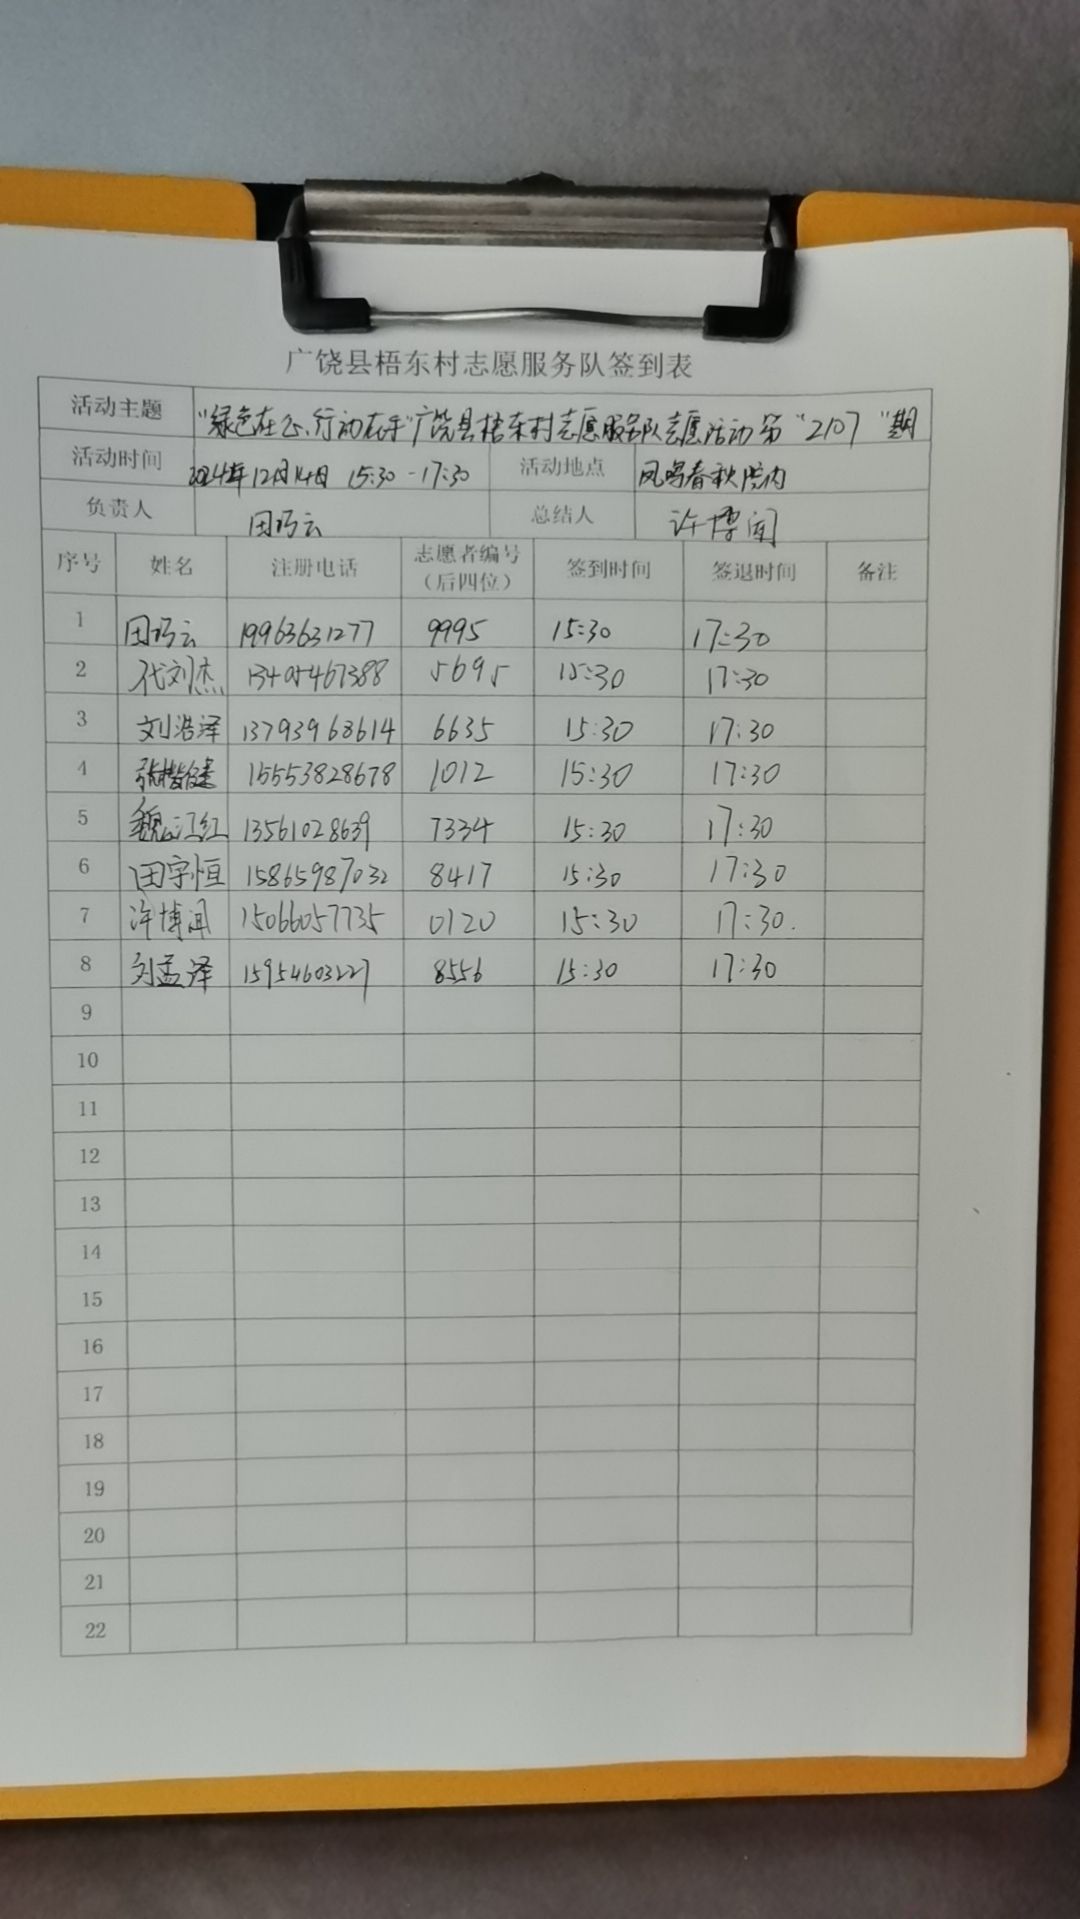 广饶县梧东村志愿服务队签到表
活动主题 "绿色在心,行动在手"广饶县梧东村志愿服务队志愿活动第"2107"期
活动时间 2024年12月14日 15:30-17:30 活动地点 凤鸣春秋院内
负责人 田巧云 总结人 许博闻
序号 姓名 注册电话 志愿者编号(后四位) 签到时间 签退时间 备注
1 田巧云 19963631277 9995 15:30 17:30
2 代刘杰 13405467388 5695 15:30 17:30
3 刘浩泽 13793968614 6635 15:30 17:30
4 15553828678 1012 15:30 17:30
5 魏江红 13561028639 7334 15:30 17:30
6 田宇恒 15865987032 8417 15:30 17:30
7 许博闻 15066057735 0120 15:30 17:30.
8 刘孟泽 15954603227 8556 15:30 17:30
9
10
11
12
13
14
15
16
17
18
19
20
21
22